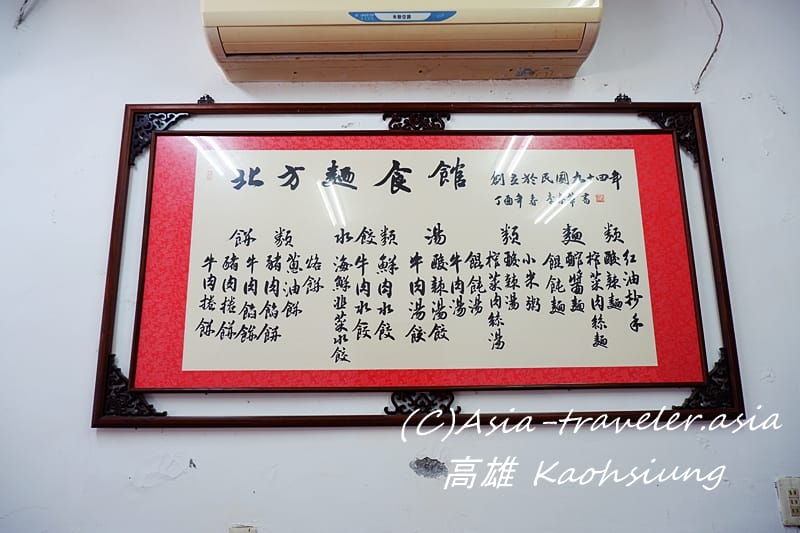 北方麵食館
創立於民國九十四年
丁酉年春
麵類
紅油抄手
酸辣麵
榨菜肉絲麵
醡醬麵
餛飩麵
湯類
小米粥
酸辣湯
榨菜肉絲湯
餛飩湯
牛肉湯
酸辣湯餃
牛肉湯餃
水餃類
鮮肉水餃
牛肉水餃
海鮮韭菜水餃
餅類
烙餅
蔥油餅
豬肉餡餅
牛肉餡餅
豬肉捲餅
牛肉捲餅
(C)Asia-traveler.asia
高雄 Kaohsiung